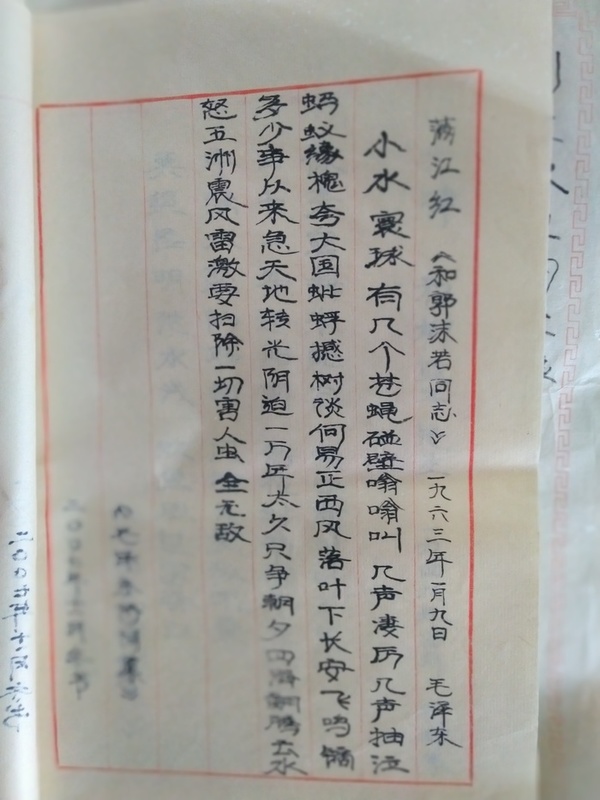 满江红 《和郭沫若同志》 一九六三年一月九日 毛泽东
小水寰球有几个苍蝇碰壁嗡嗡叫几声凄厉几声抽泣
蚂蚁缘槐夸大国蚍蜉撼树谈何易正西风落叶下长安飞鸣镝
多少事从来急天地转光阴迫一万年太久只争朝夕四海翻腾云水
怒五洲震风雷激要扫除一切害人虫全无敌